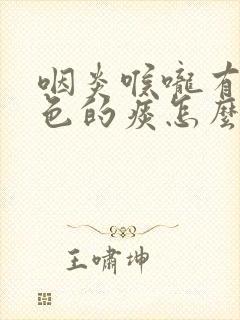 咽炎喉嚨有
色的痰怎麼
王嘯坤